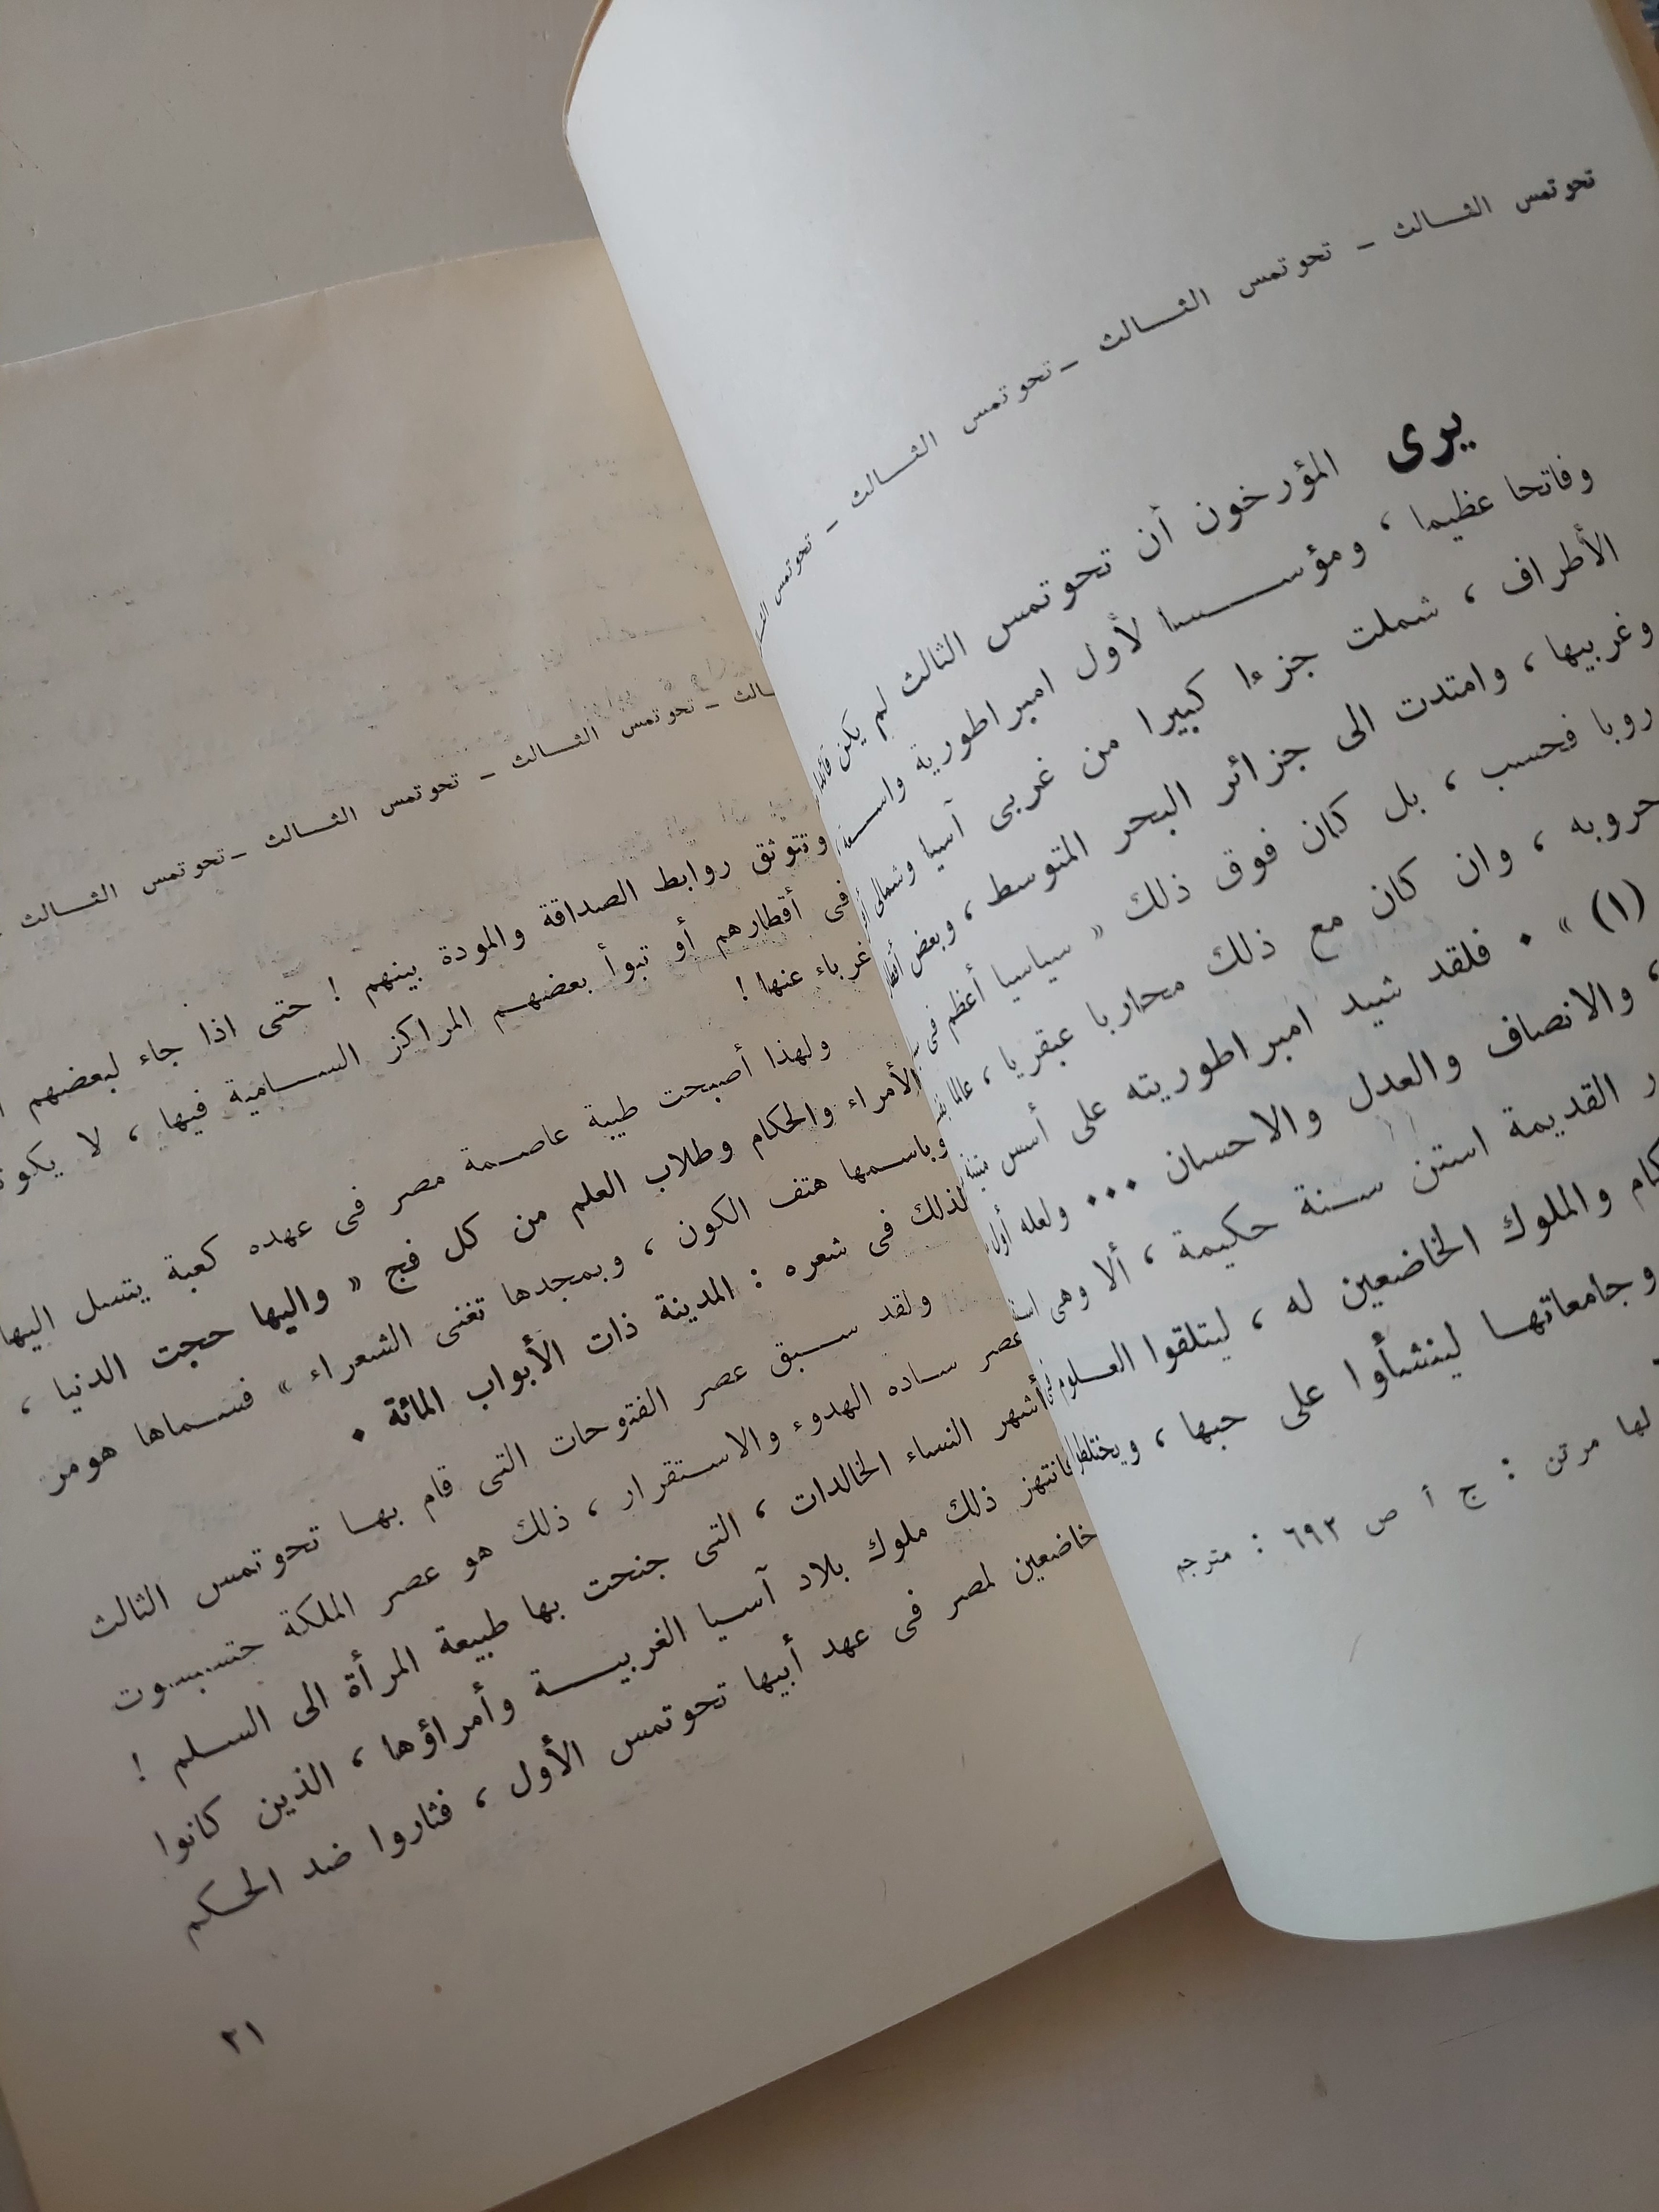 تحوتمس الثـالث – تحوتمس الثـالث – تحوتمس الثـالث – تحوتمس
يرى المؤرخون أن تحوتمس الثالث لم يكن قائدا
وفاتحا عظيما ، ومؤسسا لأول امبراطورية واسعة
الأطراف ، شملت جزءا كبيرا من غربى آسيا وشمالى
وغربيها ، وامتدت الى جزائر البحر المتوسط ، وبعض أقطار
روبا فحسب ، بل كان فوق ذلك « سياسيا أعظم فى
حروبه ، وان كان مع ذلك محاربا عبقريا ، عالما
(١) » • فلقد شيد امبراطوريته على أسس متينة
، والانصاف والعدل والاحسان ••• ولعله أول
القديمة استن سنة حكيمة ، ألا وهى
والملوك الخاضعين له ، ليتلقوا العلوم فى
وجامعاتها لينشأوا على حبها ، ويختلطوا
لها مرتن : ج أ ص ٦٩٣ : مترجم
تحوتمس الثـالث – تحوتمس الثـالث – تحوتمس الثـالث – تحوتمس الثـالث
وتتوثق روابط الصداقة والمودة بينهم ! حتى اذا جاء لبعضهم
فى أقطارهم أو تبوأ بعضهم المراكز السامية فيها ، لا
غرباء عنها !
ولهذا أصبحت طيبة عاصمة مصر فى عهده كعبة ينسل اليها
الأمراء والحكام وطلاب العلم من كل فج « واليها حجت الدنيا ،
وباسمها هتف الكون ، وبمجدها تغنى الشعراء » فسماها هومر
لذلك فى شعره : المدينة ذات الأبواب المائة •
ولقد سبق عصر الفتوحات التى قام بها تحوتمس الثالث
عصر ساده الهدوء والاستقرار ، ذلك هو عصر الملكة حتسبسوت
أشهر النساء الخالدات ، التى جنحت بها طبيعة المرأة الى السلم !
فانتهز ذلك ملوك بلاد آسيا الغربية وأمراؤها ، الذين كانوا
خاضعين لمصر فى عهد أبيها تحوتمس الأول ، فثاروا ضد الحكم
٢١